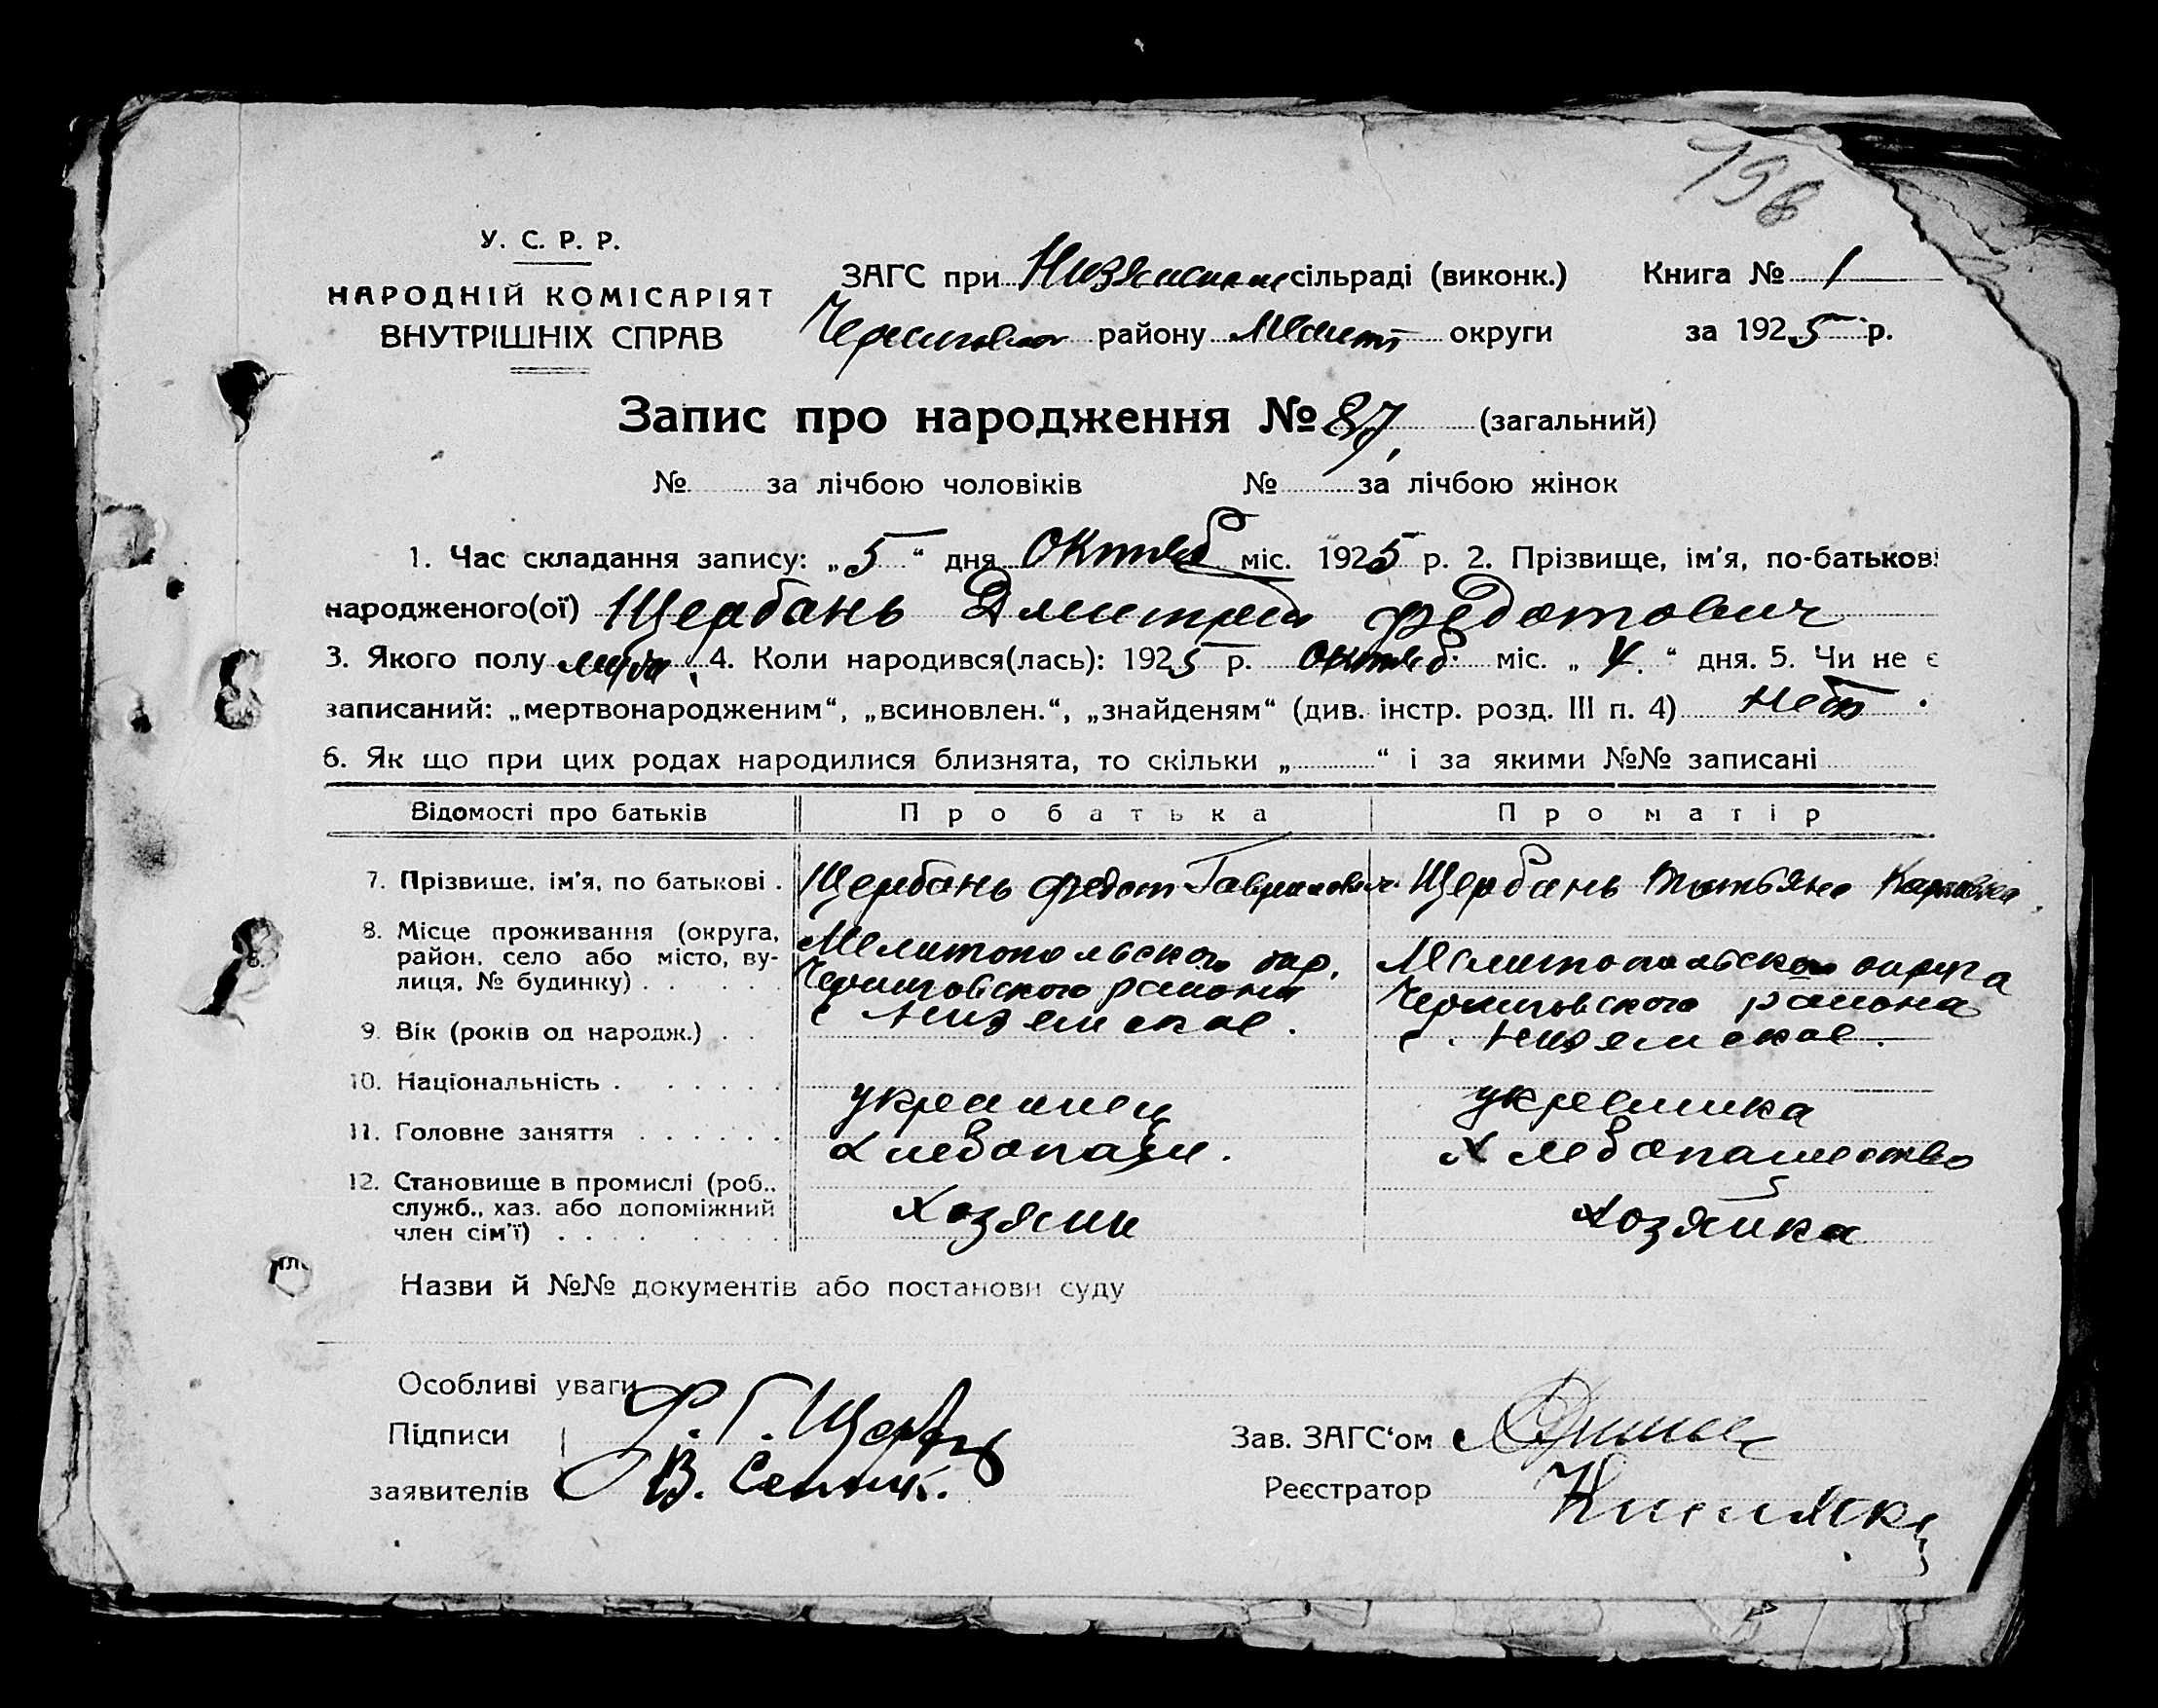 198
У. С. Р. Р.
НАРОДНІЙ КОМІСАРІЯТ
ВНУТРІШНІХ СПРАВ
ЗАГС при сільраді (виконк.) Книга № 1
району Мелит округи за 1925 р.
Запис про народження № 87 (загальний)
№ за лічбою чоловіків № за лічбою жінок
1. Час складання запису: „5“ дня Октяб міс. 1925 р. 2. Прізвище, ім'я, по-батькові
народженого(ої) Щербань Дмитрий Федотович
3. Якого полу 4. Коли народився(лась): 1925 р. Октяб. міс. „4.“ дня. 5. Чи не є
записаний: „мертвонародженим“, „всиновлен.“, „знайденям“ (див. інстр. розд. III п. 4) Нет
6. Як що при цих родах народилися близнята, то скільки „ “ і за якими №№ записані
Відомості про батьків Про батька Про матір
7. Прізвище, ім'я, по батькові . Щербань Федот Гаврилович Щербань Татьяна Карповна
8. Місце проживання (округа, район, село або місто, вулиця, № будинку) . . . . .
Мелитопольского окр. Мелитопольского округа
Черниговского района Черниговского района
с Низянское. с. Низянское.
9. Вік (років од народж.) . .
10. Національність . . . . . . украинец украинка
11. Головне заняття . . . . . . хлебопаш. хлебопашество
12. Становище в промислі (роб., служб., хаз. або допоміжний член сім'ї) . . . . . . . хозяин хозяйка
Назви й №№ документів або постанови суду
Особливі уваги
Підписи Ф. Г. Щерб Зав. ЗАГС‘ом
заявителів В. Реєстратор